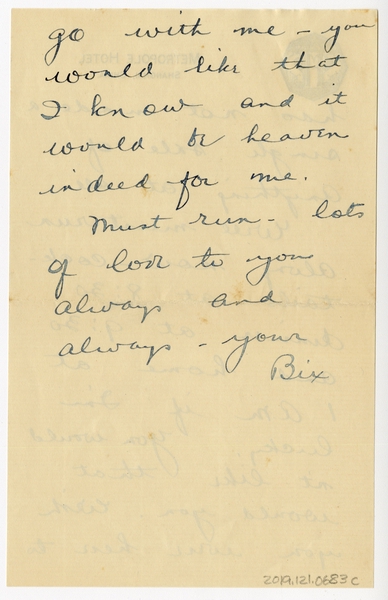 go with me - you
would like that
I know and it
would be heaven
indeed for me.
Must run - lots
of love to you
always and
always - your
Bix
2019.121.0683c